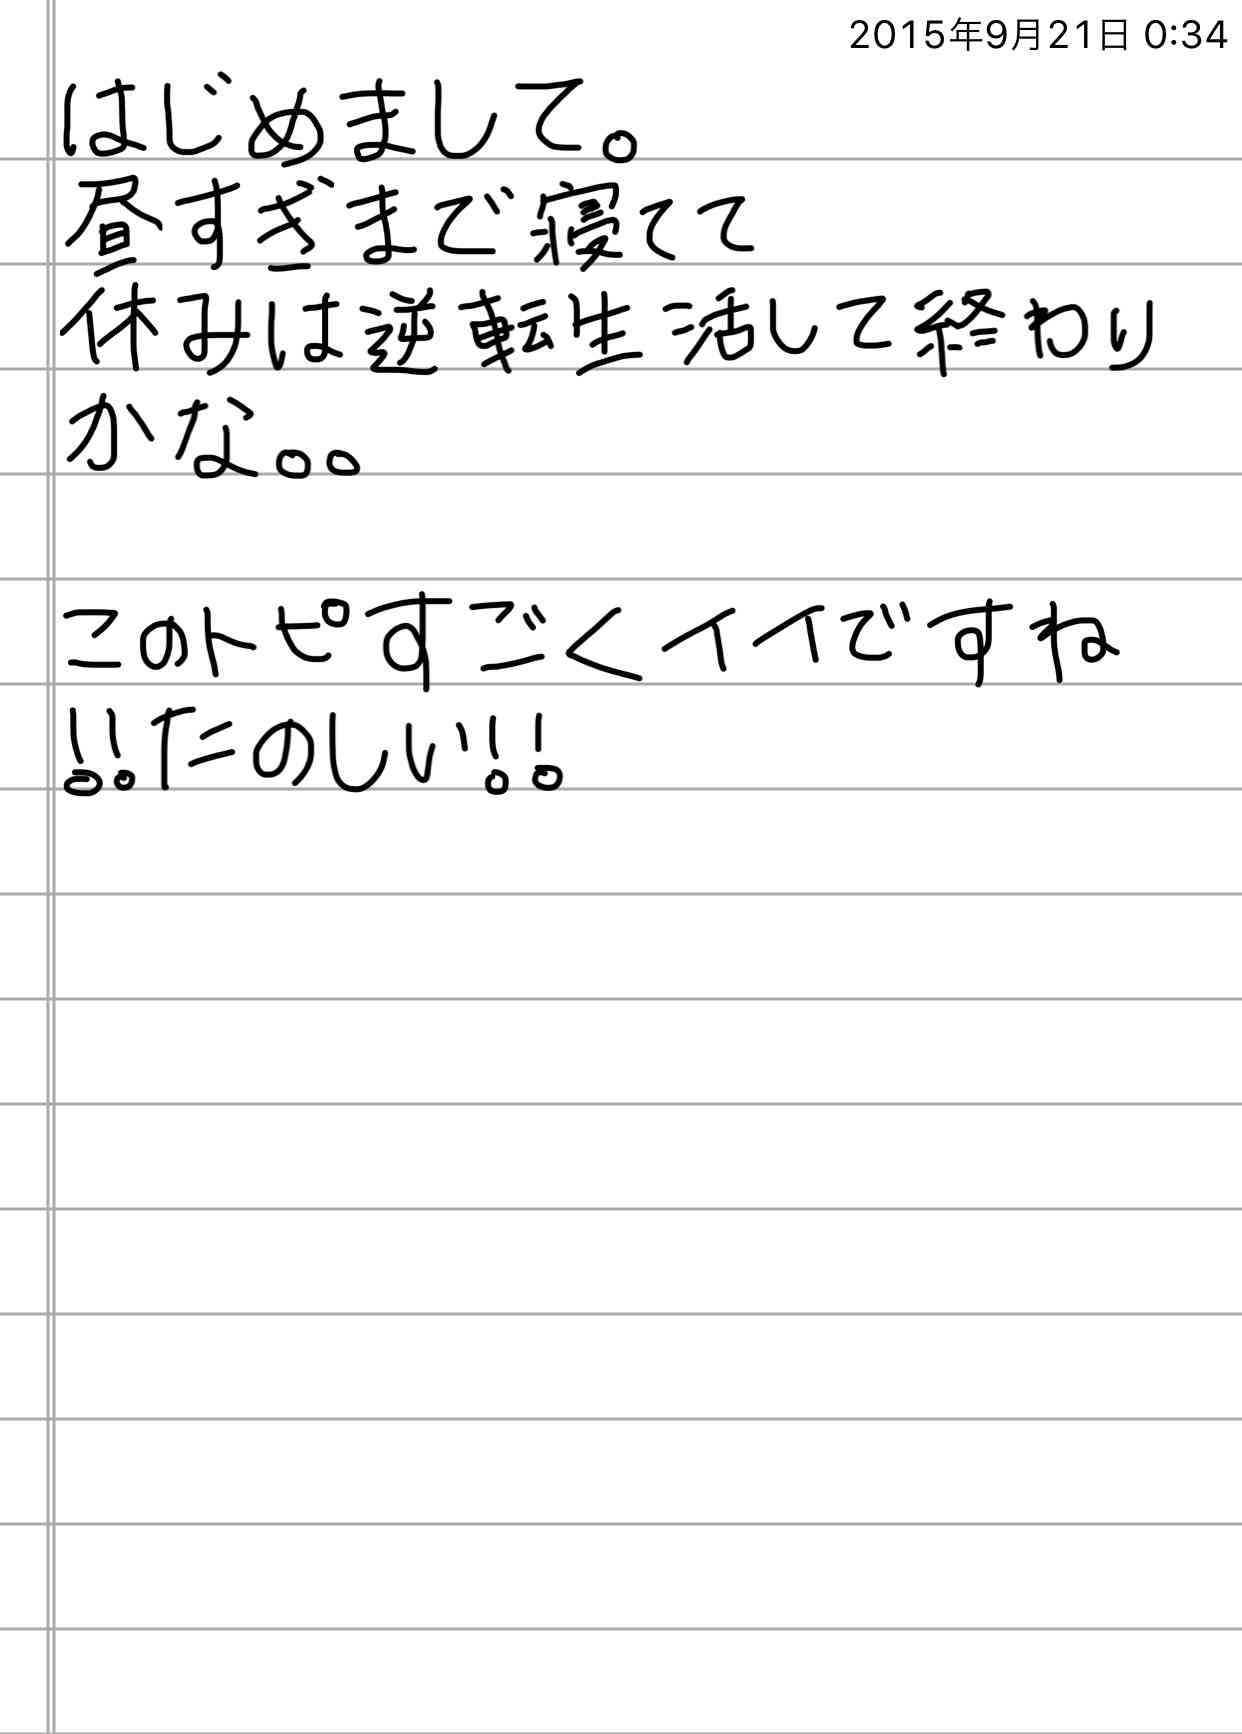 2015年9月21日 0:34
はじめまして。
昼すぎまで寝てて
休みは逆転生活して終わり
かな。。
このトピすごくイイですね
!!たのしい!!